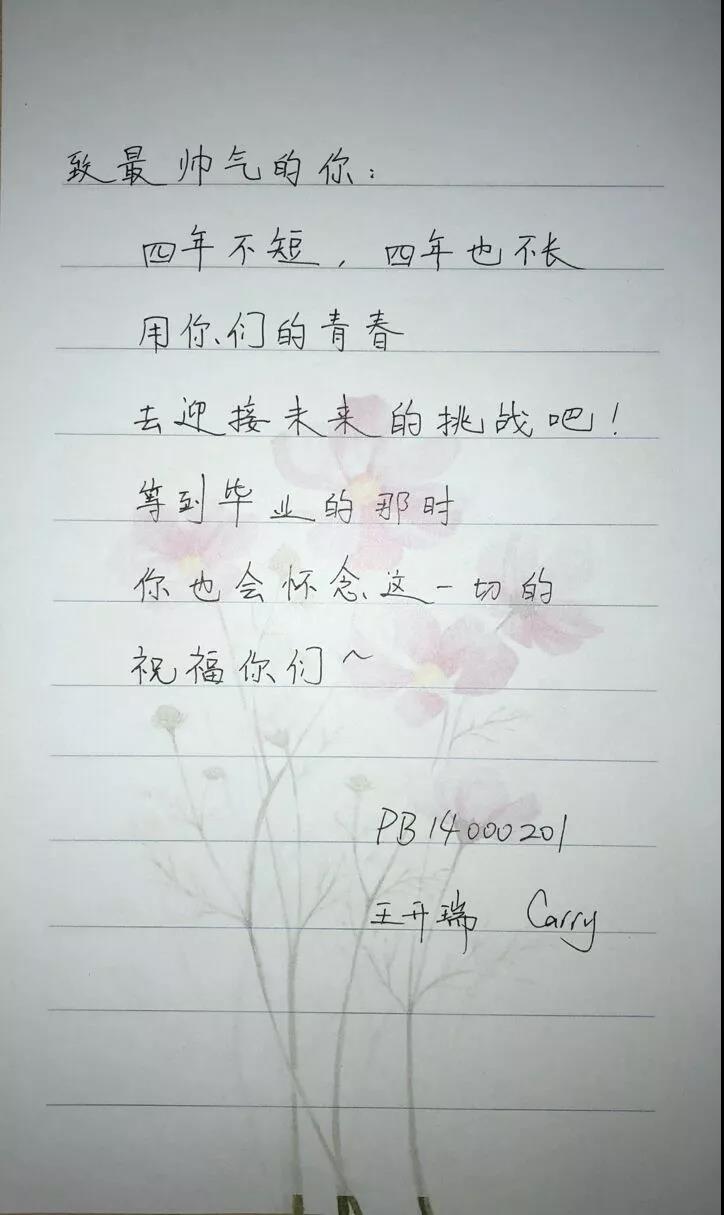 致最帅气的你：
四年不短，四年也不长
用你们的青春
去迎接未来的挑战吧！
等到毕业的那时
你也会怀念这一切的
祝福你们～
PB14000201
王开瑞 Carry